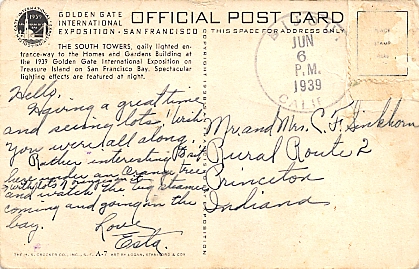 1939
GOLDEN GATE
INTERNATIONAL
EXPOSITION
SAN FRANCISCO
OFFICIAL POST CARD
THIS SPACE FOR ADDRESS ONLY
THE SOUTH TOWERS, gaily lighted en-
trance-way to the Homes and Gardens Building at
the 1939 Golden Gate International Exposition on
Treasure Island on San Francisco Bay. Spectacular
lighting effects are featured at night.
JUN
6
P.M.
1939
CALIF
Hello.
Having a great time
and seeing lots. Wish
you were all along.
Rather interesting to sit
here under an orange tree
with lots of oranges on it
and watch the big steamers
coming and going in the
bay.
Love
Mr. and Mrs. C. F.
Rural Route 2
Princeton
Indiana